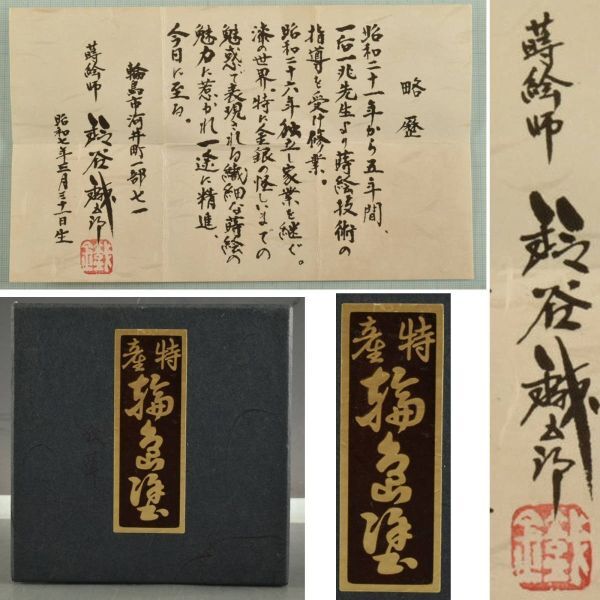 略歴
昭和二十一年から五年間、
一后一兆先生より蒔絵技術の
指導を受け修業。
昭和二十六年独立し家業を継ぐ。
漆の世界。特に金銀の怪しいまでの
魅惑で表現される繊細な蒔絵の
魅力に惹かれ一途に精進、
今日に至る。
輪島市河井町一部七一
蒔絵師 鈴谷鐵五郎
昭和七年三月三十一日生
蒔絵師 鈴谷鐵五郎
特産
輪島塗
特産
輪島塗